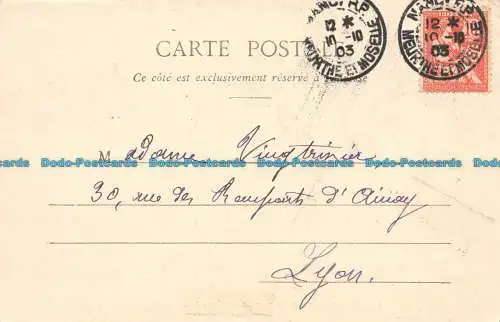 CARTE POSTALE
Ce côté est exclusivement réservé à
NANCY R.P.
12 *
10 -10
03
MEURTHE ET MOSELLE
NANCY R.P.
12 *
10 -10
03
MEURTHE ET MOSELLE
Madame Vingtrinier
Dodo-Postcards Dodo-Postcards Dodo-Postcards Dodo-Postcards Dodo-Postcards
30, rue des Remparts d'Ainay
Lyon.